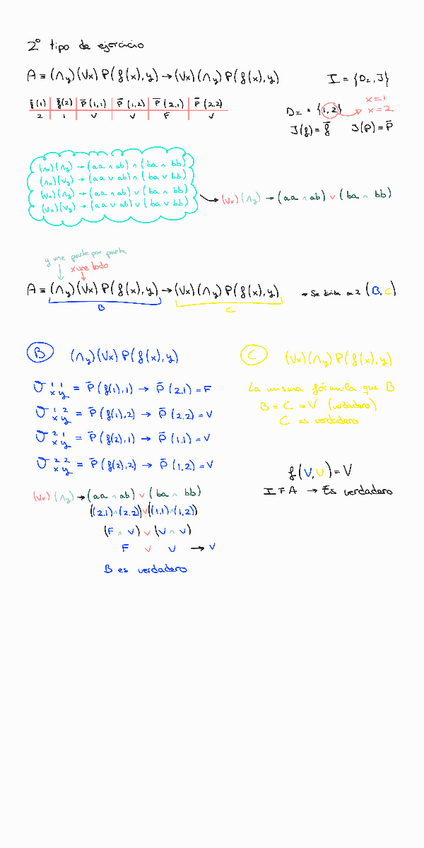 2º tipo de ejercicio
A ≡ (∧y)(∨x) P(f(x),y) → (∨x)(∧y) P(f(x),y)
I = {D₂, J}
f̄(1) | f̄(2) | P̄(1,1) | P̄(1,2) | P̄(2,1) | P̄(2,2)
2 | 1 | V | V | F | V
D₂ = {1,2}
x=1
x=2
J(f) = f̄ J(P) = P̄
(∧x)(∧y) → (aa ∧ ab) ∧ (ba ∧ bb)
(∧x)(∨y) → (aa ∨ ab) ∧ (ba ∨ bb)
(∨x)(∧y) → (aa ∧ ab) ∨ (ba ∧ bb)
(∨x)(∨y) → (aa ∨ ab) ∨ (ba ∨ bb)
(∨x)(∧y) → (aa ∧ ab) ∨ (ba ∧ bb)
y parte por parte
x todo
A ≡ (∧y)(∨x) P(f(x),y) → (∨x)(∧y) P(f(x),y)
B C
→ Se divide en 2 (B, C)
B (∧y)(∨x) P(f(x),y)
V 1 1 x y = P̄(f(1),1) → P̄(2,1) = F
V 1 2 x y = P̄(f(1),2) → P̄(2,2) = V
V 2 1 x y = P̄(f(2),1) → P̄(1,1) = V
V 2 2 x y = P̄(f(2),2) → P̄(1,2) = V
(∨x)(∧y) → (aa ∧ ab) ∨ (ba ∧ bb)
((2,1) ∧ (2,2)) ∨ ((1,1) ∧ (1,2))
(F ∧ V) ∨ (V ∧ V)
F ∨ V → V
B es verdadero
C (∨x)(∧y) P(f(x),y)
La misma fórmula que B
B = C = V (verdadero)
C es verdadero
f(V,V) = V
I ⊧ A → Es verdadero